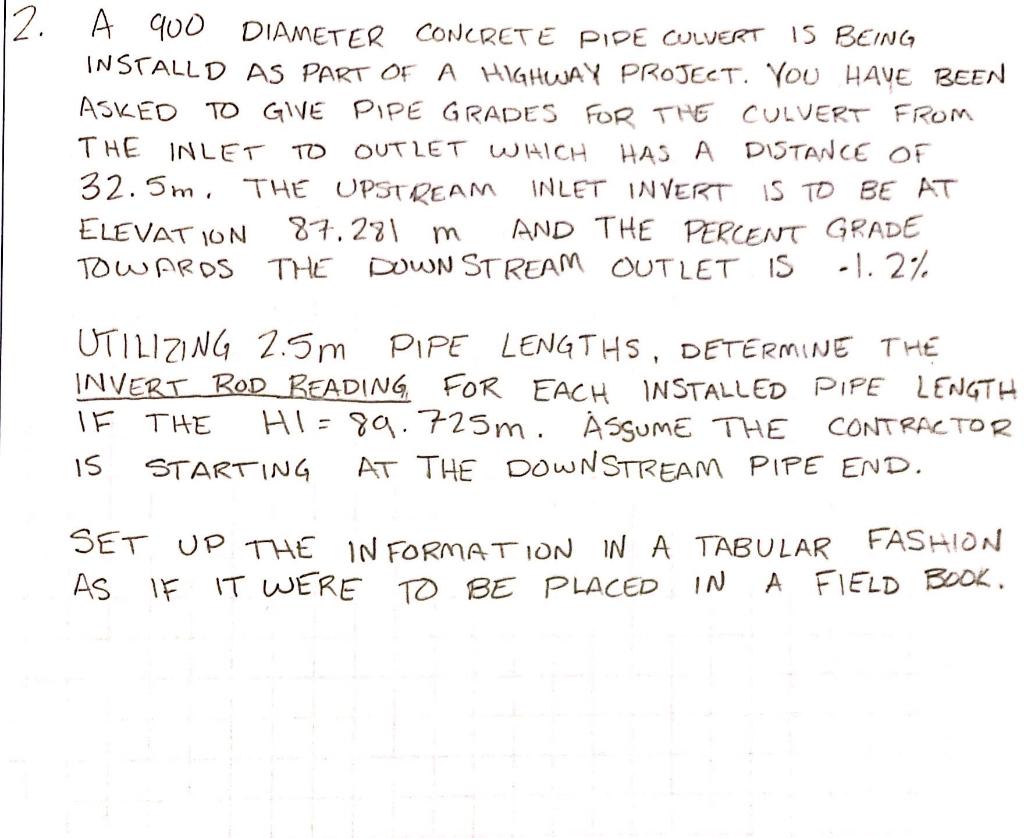 2. A 900 DIAMETER CONCRETE PIPE CULVERT IS BEING
INSTALLD AS PART OF A HIGHWAY PROJECT. YOU HAVE BEEN
ASKED TO GIVE PIPE GRADES FOR THE CULVERT FROM
THE INLET TO OUTLET WHICH HAS A DISTANCE OF
32.5m. THE UPSTREAM INLET INVERT IS TO BE AT
ELEVATION 87.281 m AND THE PERCENT GRADE
TOWARDS THE DOWNSTREAM OUTLET IS -1.2%
UTILIZING 2.5m PIPE LENGTHS, DETERMINE THE
INVERT ROD READING FOR EACH INSTALLED PIPE LENGTH
IF THE HI = 89.725m. ASSUME THE CONTRACTOR
IS STARTING AT THE DOWNSTREAM PIPE END.
SET UP THE INFORMATION IN A TABULAR FASHION
AS IF IT WERE TO BE PLACED IN A FIELD BOOK.